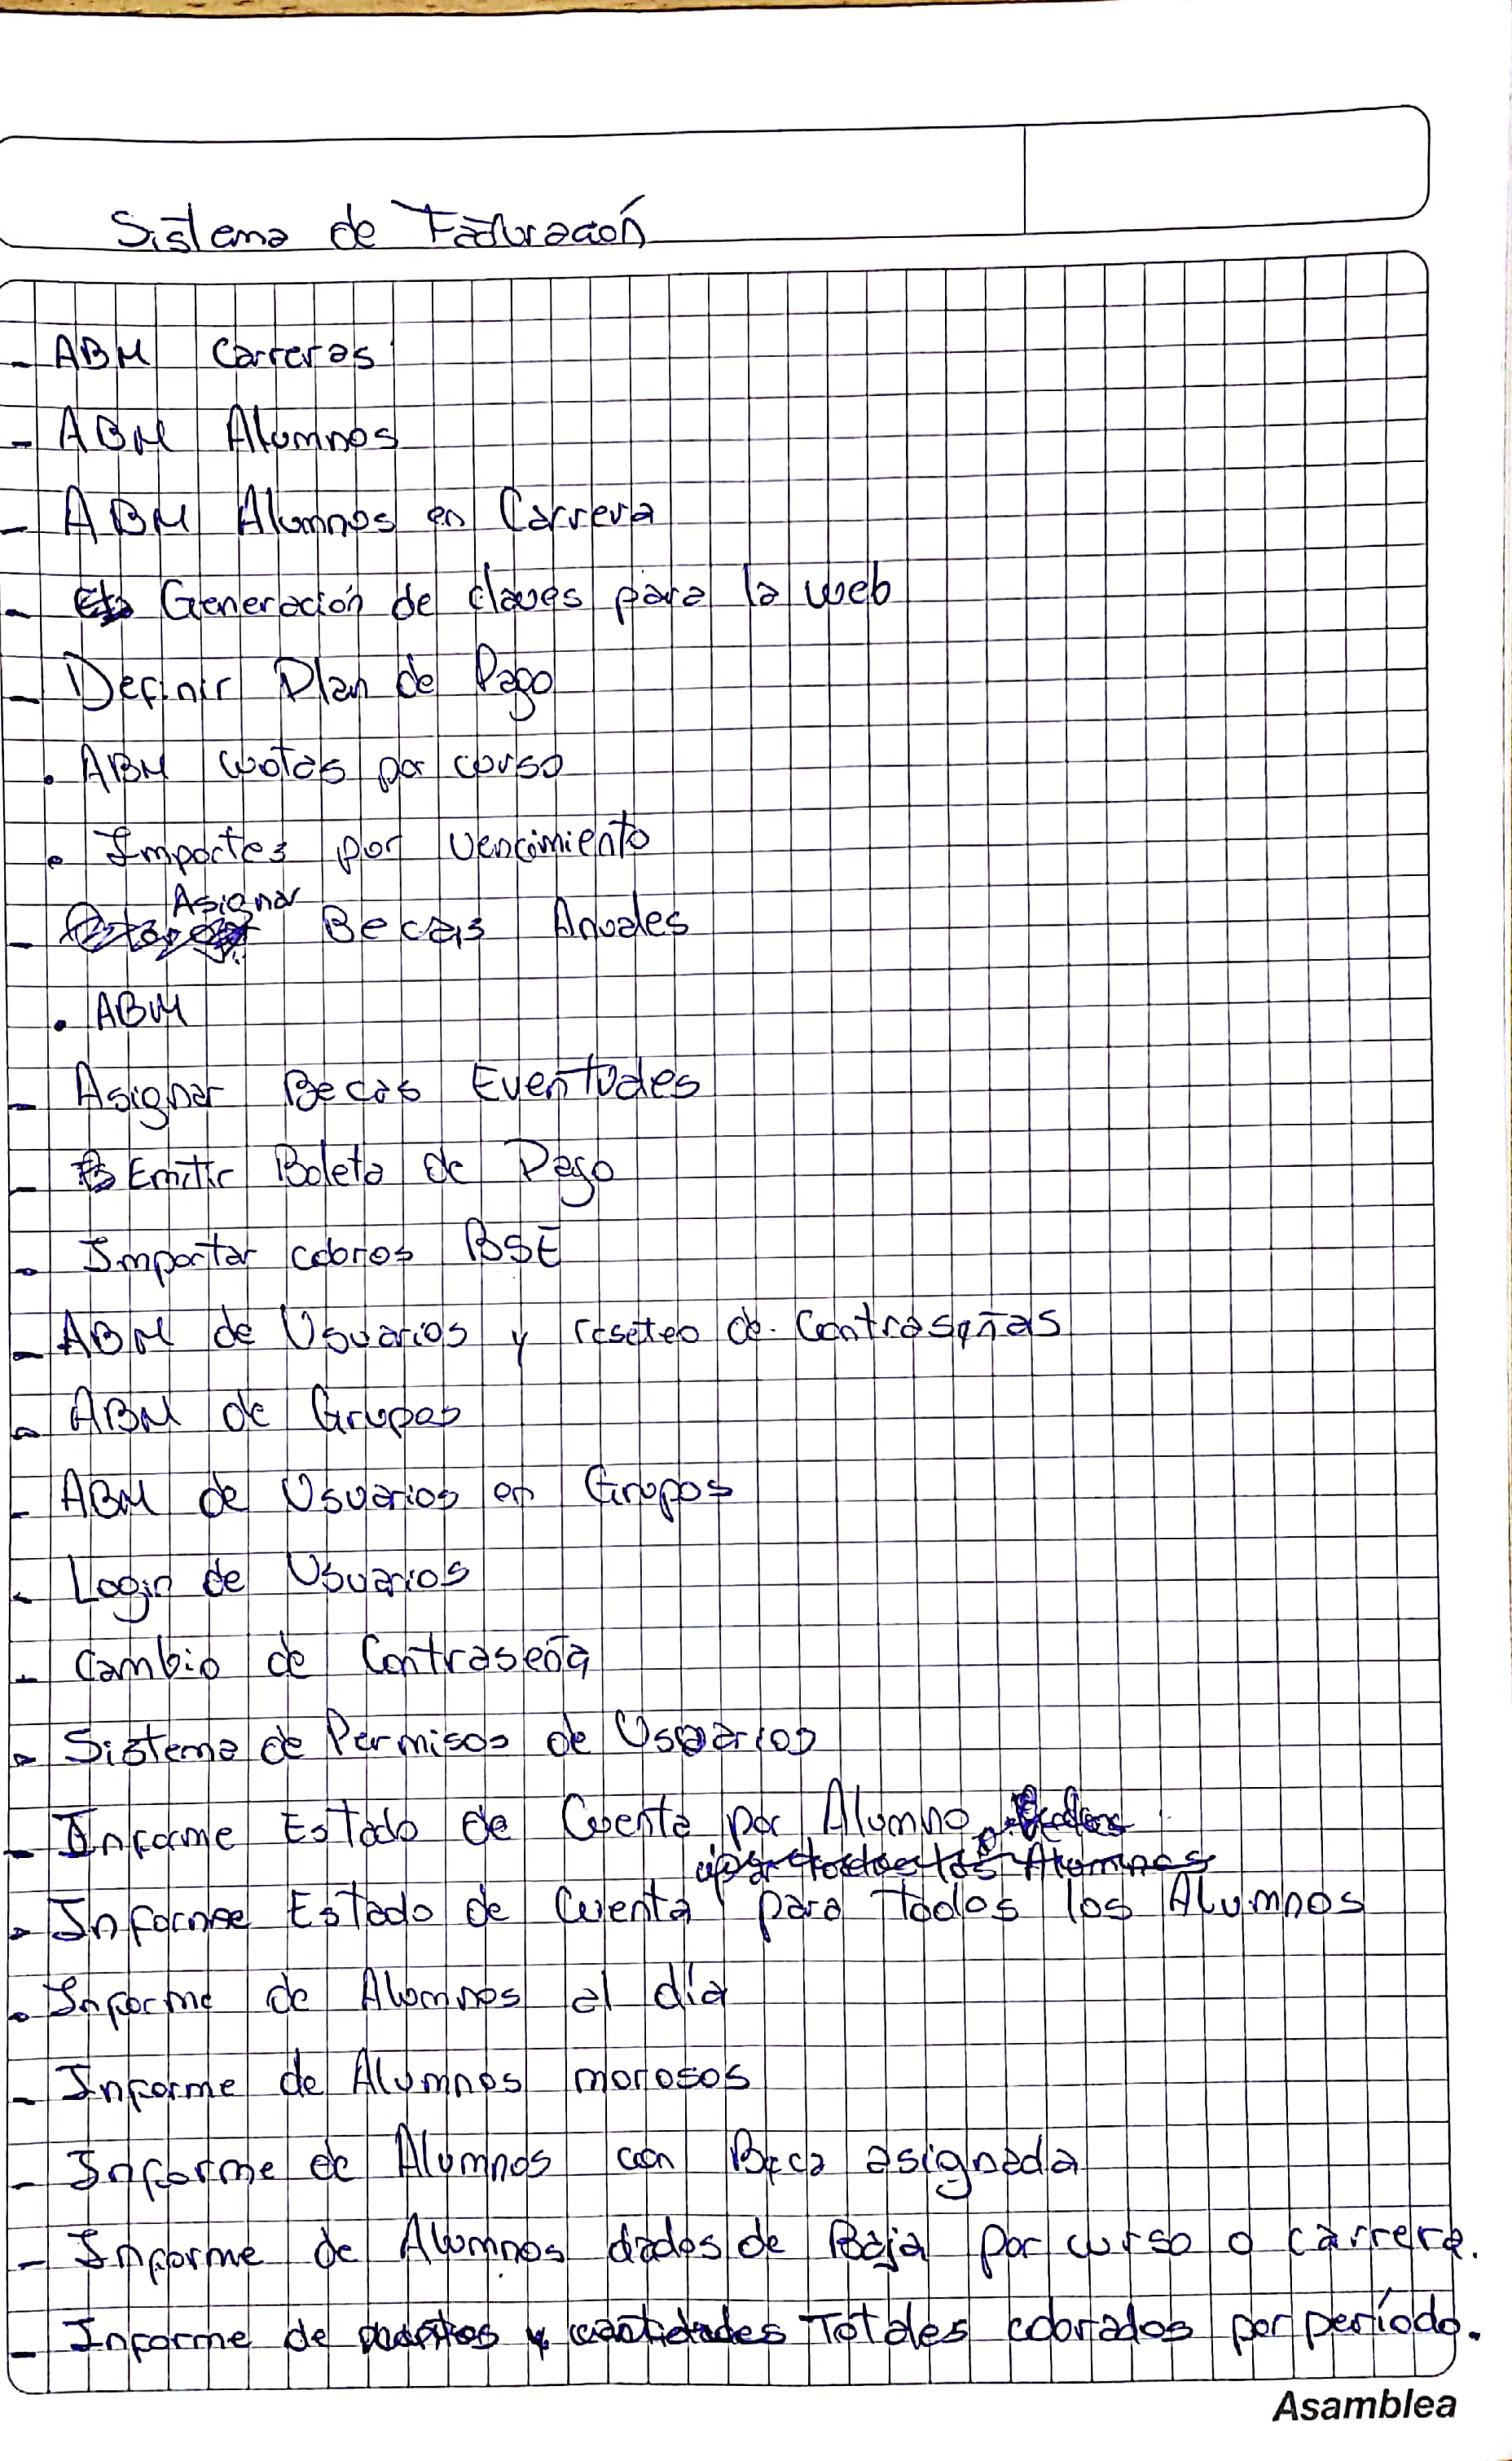 Sistema de Facturación
- ABM Carreras
- ABM Alumnos
- ABM Alumnos en Carrera
- Generación de claves para la web
- Definir Plan de Pago
• ABM cuotas por curso
• Importes por vencimiento
- Asignar Becas Anuales
• ABM
- Asignar Becas Eventuales
- Emitir Boleta de Pago
- Importar cobros BSE
- ABM de Usuarios y reseteo de Contraseñas
- ABM de Grupos
- ABM de Usuarios en Grupos
- Login de Usuarios
- Cambio de Contraseña
- Sistema de Permisos de Usuarios
- Informe Estado de Cuenta por Alumno
para todos los Alumnos
- Informe Estado de Cuenta para Todos los Alumnos
- Informe de Alumnos al día
- Informe de Alumnos morosos
- Informe de Alumnos con Beca asignada
- Informe de Alumnos dados de Baja por curso o carrera.
- Informe de y cantidades Totales cobrados por período.
Asamblea